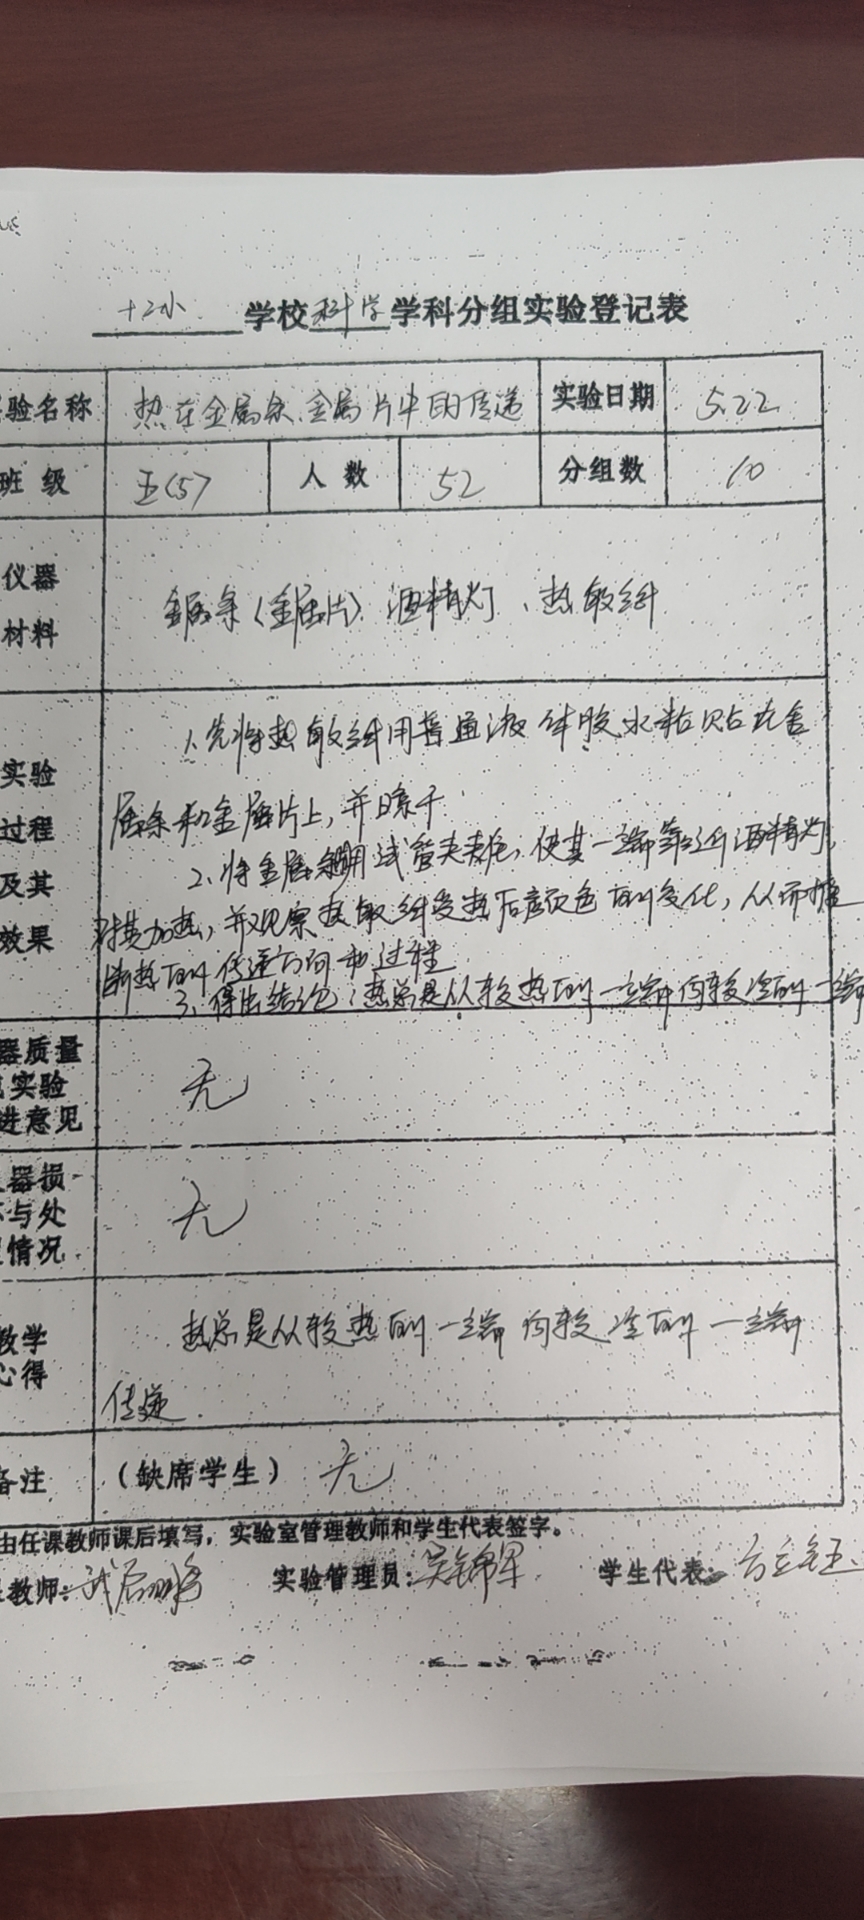 十二小 学校科学学科分组实验登记表
验名称 热在金属条、金属片中的传递 实验日期 5.22
班 级 五(5) 人 数 52 分组数 10
仪器
材料
金属条(金属片) 酒精灯、热敏纸
实验
过程
及其
效果
1、先将热敏纸用普通液体胶水粘贴在金
属条和金属片上，并晾干
2、将金属条用试管夹夹住，使其一端靠近酒精灯，
对其加热，并观察热敏纸受热后颜色的变化，从而推
断热的传递方向和过程
3、得出结论：热总是从较热的一端向较冷的一端
器质量
实验
进意见
无
器损
与处
情况
无
教学
心得
热总是从较热的一端向较冷的一端
传递
备注 （缺席学生） 无
由任课教师课后填写，实验室管理教师和学生代表签字。
教师： 实验管理员：吴锦军 学生代表：